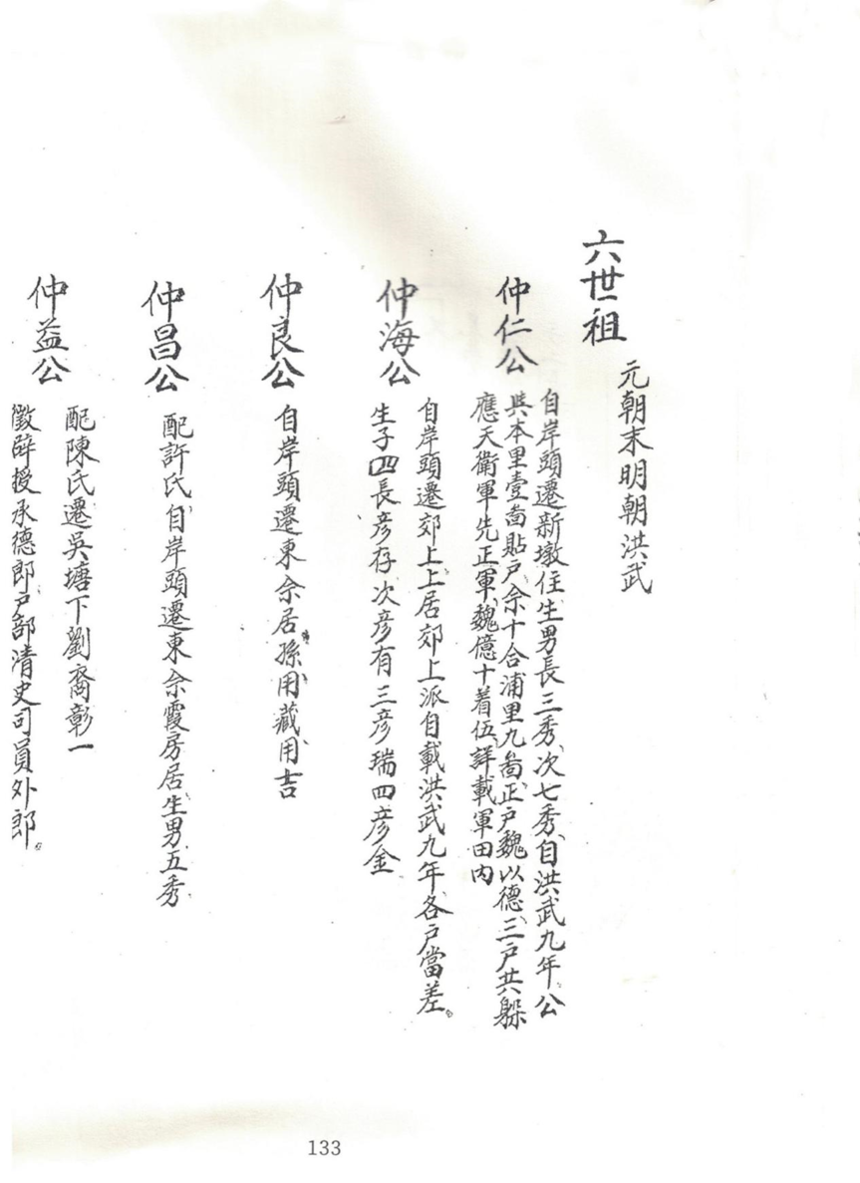 六世祖
元朝末明朝洪武
仲仁公
自岸頭遷新墩住生男長三秀、次七秀、自洪武九年、公
與本里壹啚貼戶、佘十合浦里九啚正戶魏以德、三戶共躲
應天衛軍先正軍、魏億十着伍、詳載軍田内
仲海公
自岸頭遷郊上上居郊上派自載洪武九年、各戶當差。
生子四長彥存次彥有三彥瑞四彥金
仲良公
自岸頭遷東佘居孫用藏用吉
仲昌公
配許氏自岸頭遷東佘霞房居生男五秀
仲益公
配陳氏遷吳塘下劉裔彰一
徵辟授承德郎戶部清史司員外郎。
133